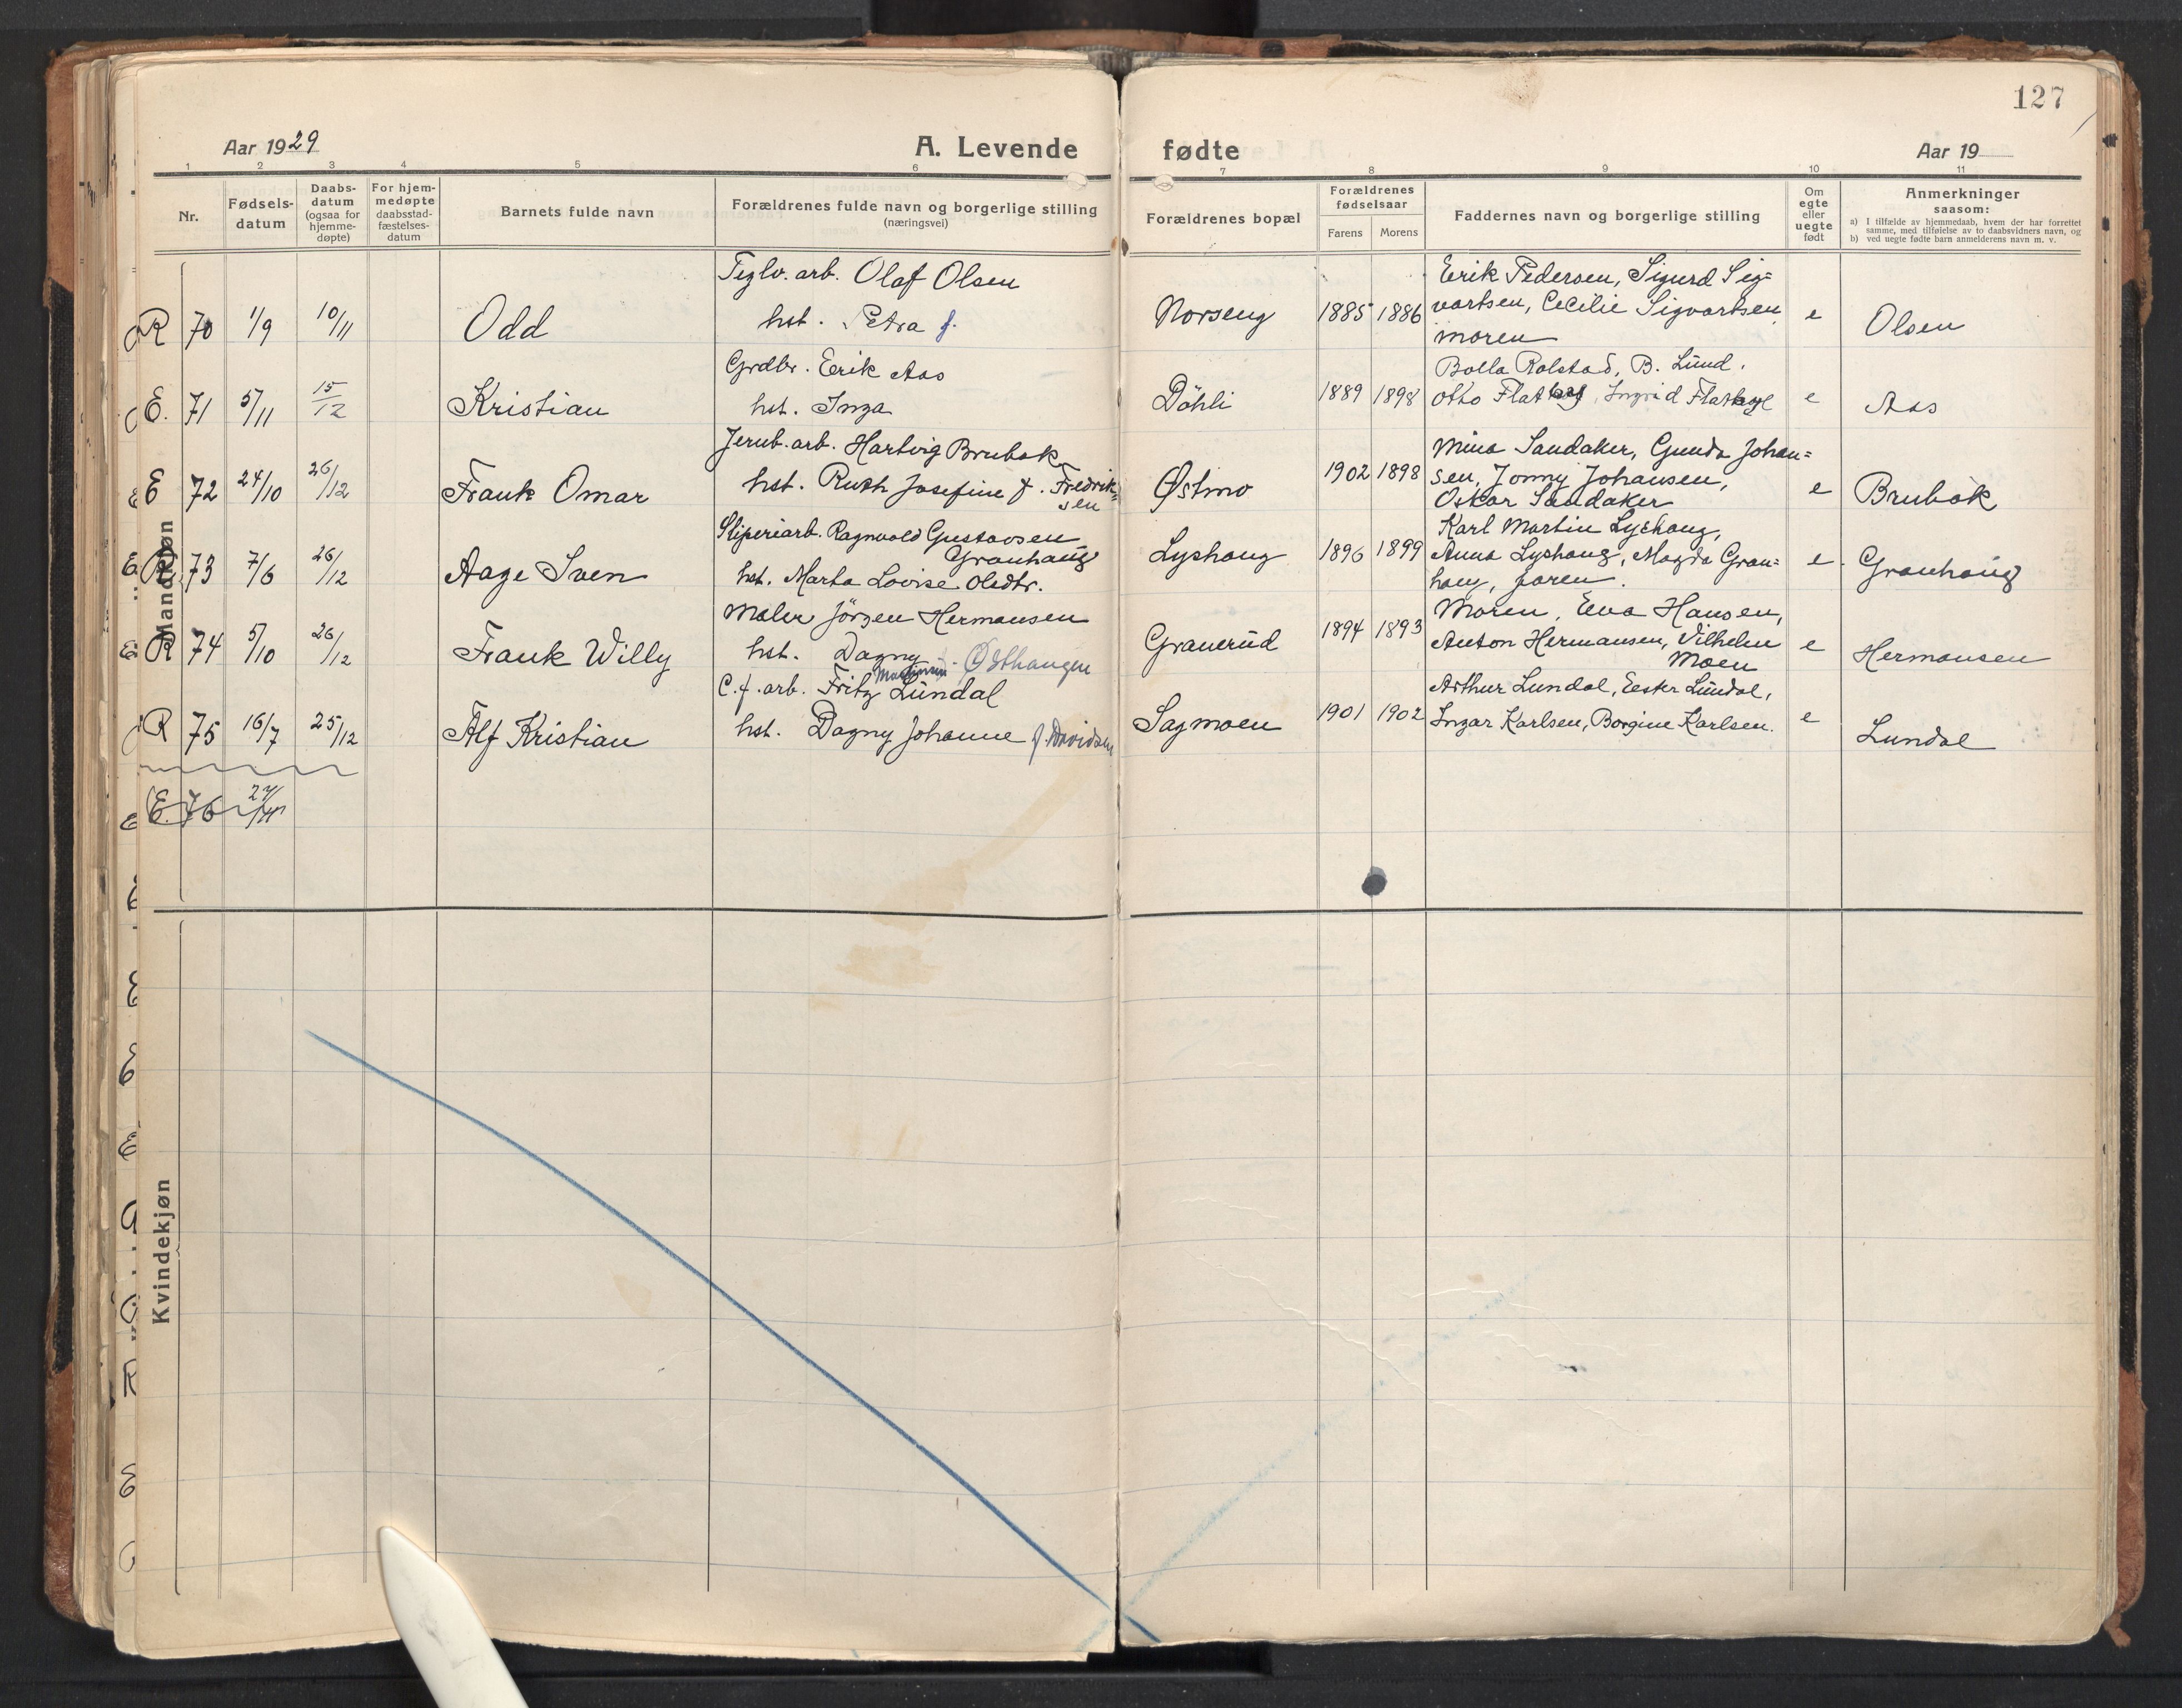 127
Aar 1929
A. Levende
fødte
Aar 19
1 2 3 4 5 6 7 8 9 10 11
Nr.
Fødsels-
datum
Daabs-
datum
(ogsaa for
hjemme-
døpte)
For hjem-
medøpte
daabsstad-
fæstelses-
datum
Barnets fulde navn
Forældrenes fulde navn og borgerlige stilling
(næringsvei)
Forældrenes bopæl
Forældrenes
fødselsaar
Farens Morens
Faddernes navn og borgerlige stilling
Om
egte
eller
uegte
født
Anmerkninger
saasom:
a) I tilfælde av hjemmedaab, hvem der har forrettet
samme, med tilføielse av to daabsvidners navn, og
b) ved uegte fødte barn anmelderens navn m. v.
Mandkjøn
Teglv. arb. Olaf Olsen
Erik Pedersen, Sigurd Sig=
vartsen, Cecilie Sigvartsen
R 70 1/9 10/11 Odd hst. Petra f. Norseng 1885 1886 e Olsen
moren
Grdbr. Erik Aas
Bolla Rolstad, B. Lund.
E. 71 5/11 15/12 Kristian hst. Inga Döhli 1889 1898 Otto Flathag, Ingrid Flathage e Aas
Jernb. arb. Hartvig Brubak
Mina Sandaker, Gunda Johan=
E 72 24/10 26/12 Frank Omar hst. Ruth Josefine f. Fredrik=
sen
Østmo 1902 1898 sen, Jonny Johansen,
Oskar Sandaker
e Brubak
Sliperiarb. Ragnvald Gustavsen
Granhaug
Karl Martin Lyshaug,
R 73 7/6 26/12 Aage Sven hst. Marta Lovise Olsdtr. Lyshaug 1896 1899 Anna Lyshaug, Magda Gran=
haug, faren.
e. Granhaug
Maler Jörgen Hermansen
Moren, Eva Hansen,
R 74 5/10 26/12 Frank Willy hst. Dagny Østhaugen Granerud 1894 1893 Anton Hermansen, Vilhelm
Moen
e Hermansen
C.f. arb. Fritz Lundal
Arthur Lundal, Ester Lundal,
R 75 16/7 25/12 Alf Kristian hst. Dagny Johanne f. Davidsen Sagmoen 1901 1902 Ingar Karlsen, Borgine Karlsen. e Lundal
E. 76
Kvindekjøn